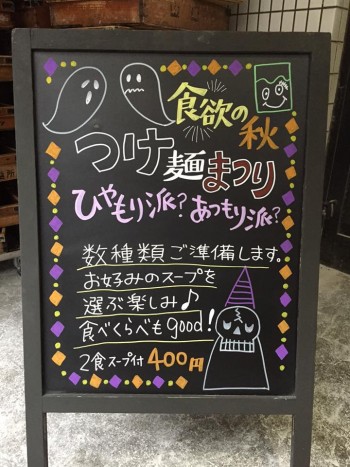 食欲の秋
つけ麺まつり
ひやもり派?あつもり派?
数種類ご準備します。
お好みのスープを
選ぶ楽しみ♪
食べくらべもgood!
2食スープ付400円